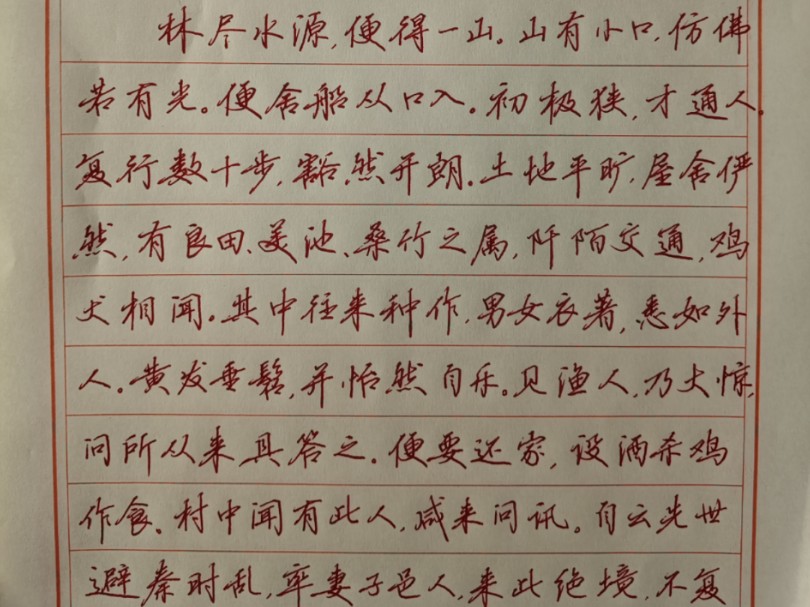 林尽水源,便得一山。山有小口,仿佛
若有光。便舍船从口入。初极狭,才通人。
复行数十步,豁然开朗。土地平旷,屋舍俨
然,有良田、美池、桑竹之属,阡陌交通,鸡
犬相闻。其中往来种作,男女衣著,悉如外
人。黄发垂髫,并怡然自乐。见渔人,乃大惊,
问所从来具答之。便要还家,设酒杀鸡
作食。村中闻有此人,咸来问讯。自云先世
避秦时乱,率妻子邑人,来此绝境,不复